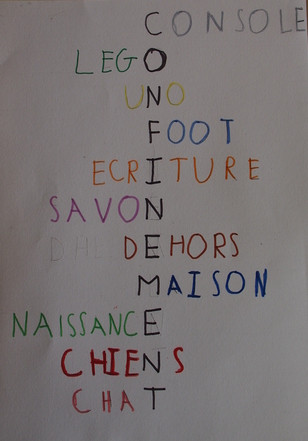 CONSOLE
LEGO
UNO
FOOT
ECRITURE
SAVON
DEHORS
MAISON
NAISSANCE
CHIENS
CHAT